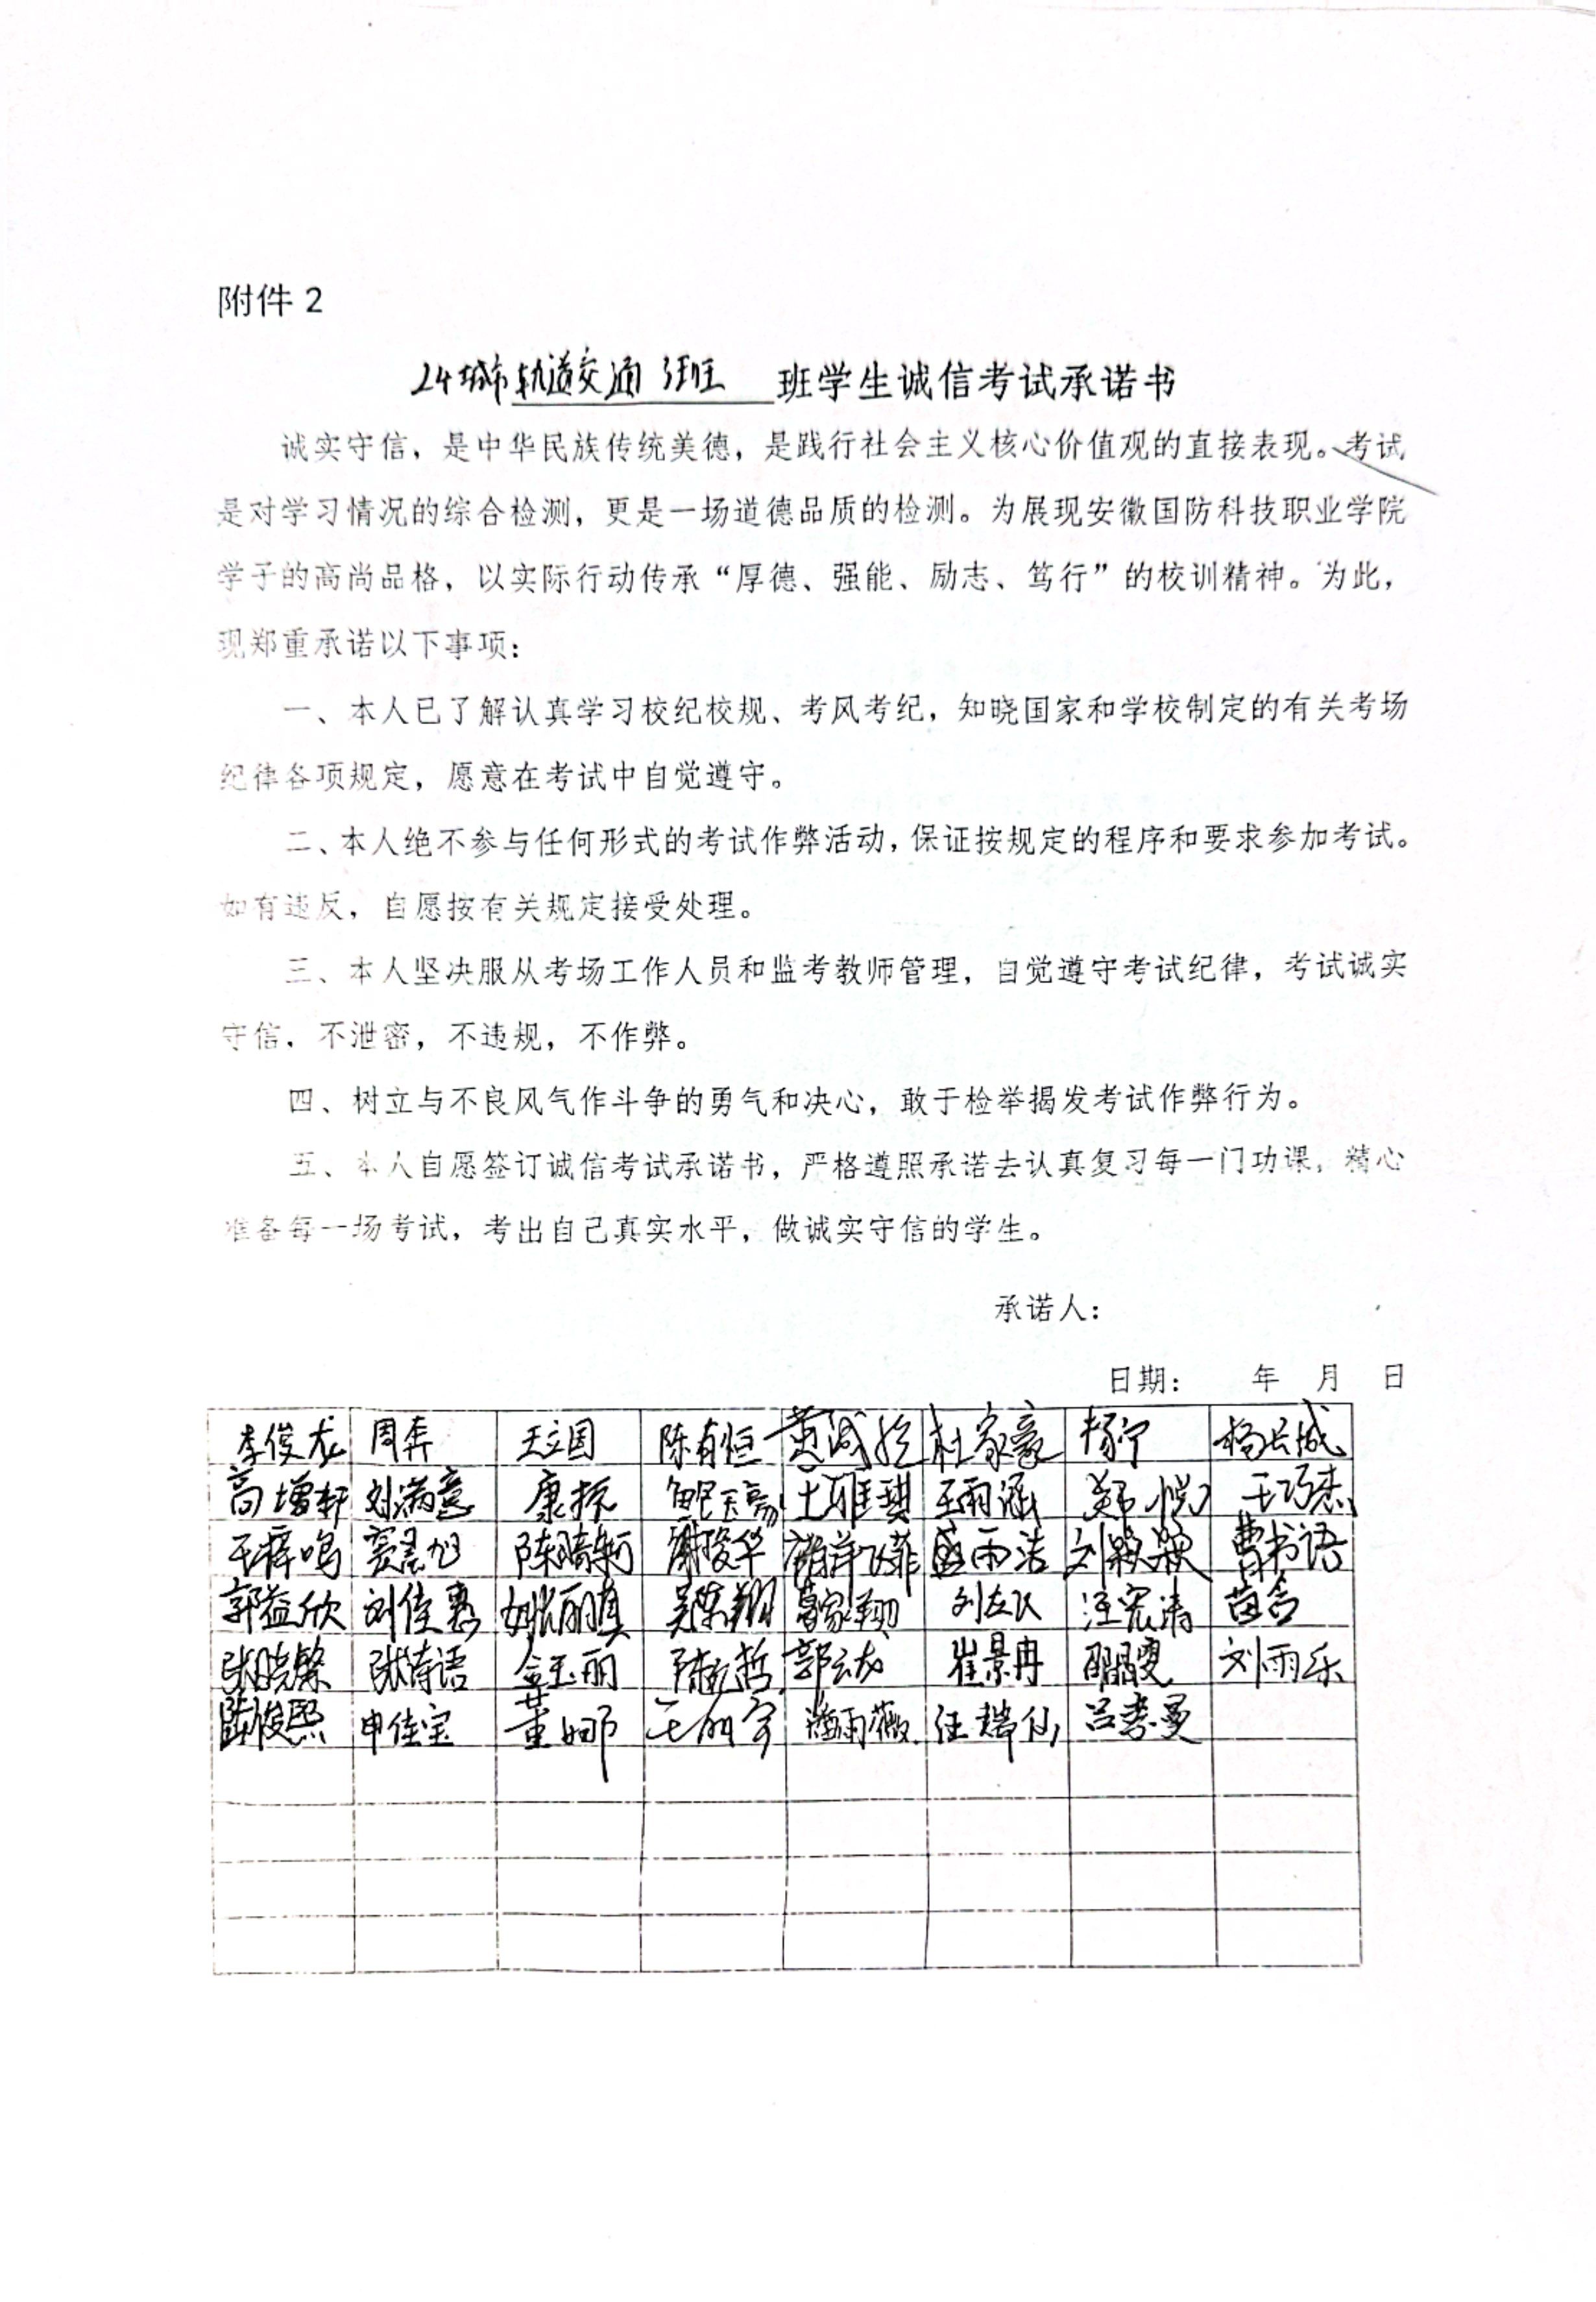 附件 2
24城市轨道交通 班 班学生诚信考试承诺书
诚实守信，是中华民族传统美德，是践行社会主义核心价值观的直接表现。考试
是对学习情况的综合检测，更是一场道德品质的检测。为展现安徽国防科技职业学院
学子的高尚品格，以实际行动传承“厚德、强能、励志、笃行”的校训精神。为此，
现郑重承诺以下事项：
一、本人已了解认真学习校纪校规、考风考纪，知晓国家和学校制定的有关考场
纪律各项规定，愿意在考试中自觉遵守。
二、本人绝不参与任何形式的考试作弊活动，保证按规定的程序和要求参加考试。
如有违反，自愿按有关规定接受处理。
三、本人坚决服从考场工作人员和监考教师管理，自觉遵守考试纪律，考试诚实
守信，不泄密，不违规，不作弊。
四、树立与不良风气作斗争的勇气和决心，敢于检举揭发考试作弊行为。
五、本人自愿签订诚信考试承诺书，严格遵照承诺去认真复习每一门功课，精心
准备每一场考试，考出自己真实水平，做诚实守信的学生。
承诺人：
日期： 年 月 日
李俊龙 周奔 王立国 陈有恒 杜家豪 杨宁 杨长城
高增轩 刘满意 康振 王雅琪 王雨涵 郑悦 王巧杰
王梓鸣 窦晨旭 陈晴轲 谢骏华 盛雨洁 刘颖颖 曹书语
郭益欣 刘佳惠 姚丽真 吴荣翔 葛家翔 汪宏涛 苗含
张晓黎 张诗语 金玉丽 郭云龙 崔景冉 刘雨乐
陈俊熙 申佳宝 董娜 潘雨薇 汪慧仙 吕李曼